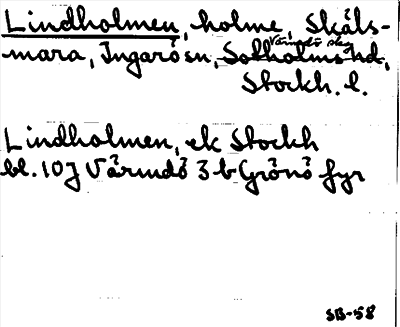 Lindholmen, holme, Skäls-
mara, Ingarö sn, Värmdö skg
Sotholms hd,
Stockh. l.
Lindholmen, ek Stockh
bl. 10J Värmdö 3 b Grönö fyr
SB-58